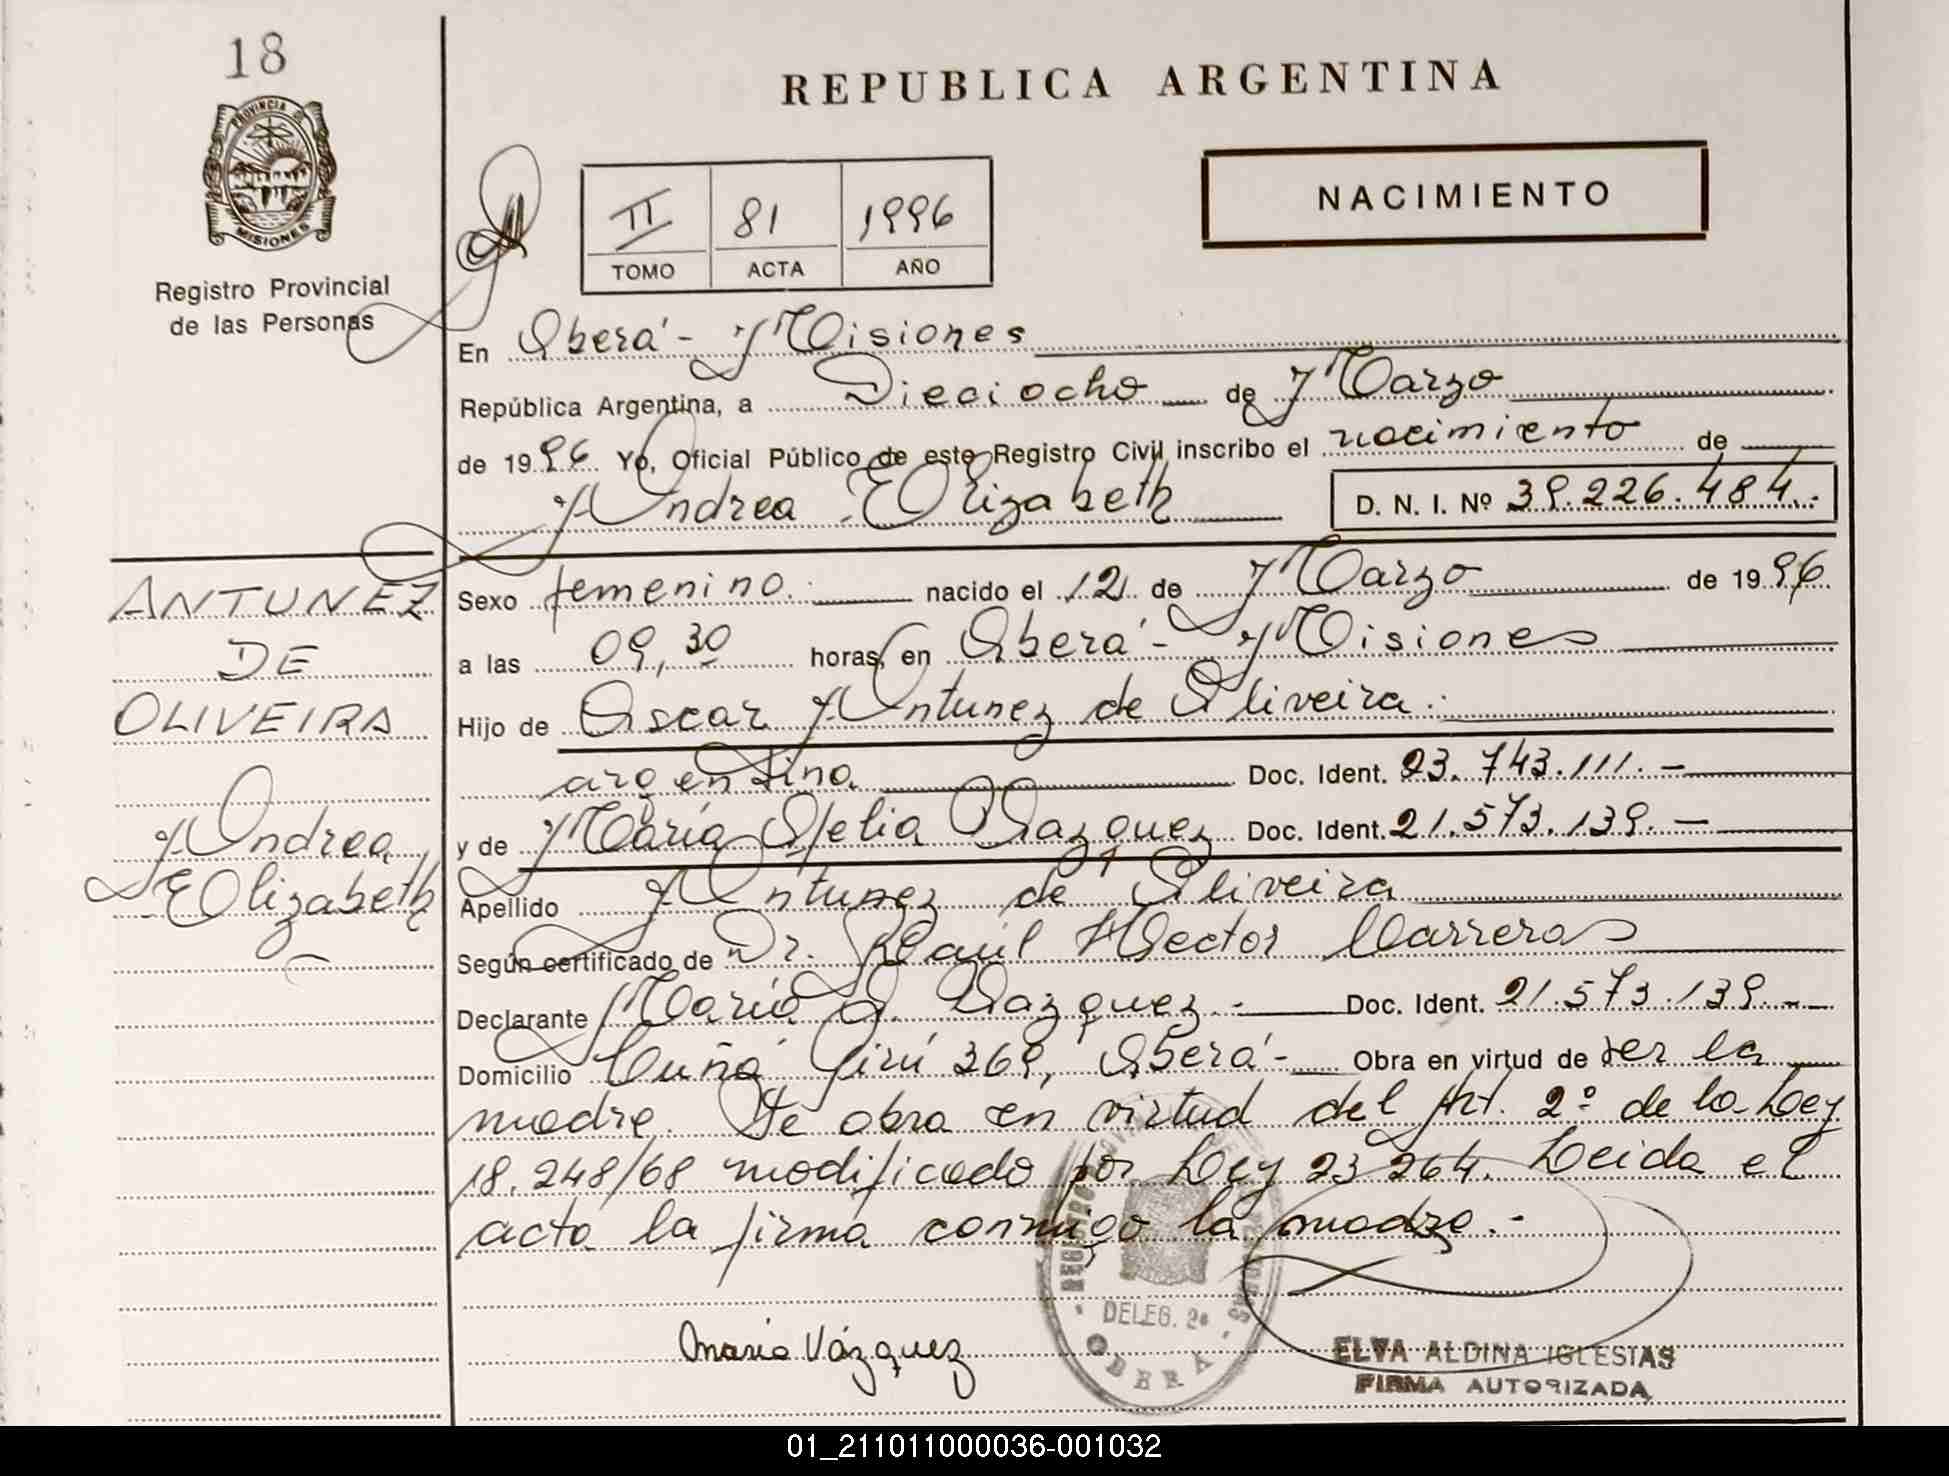 18
PROVINCIA DE
MISIONES
Registro Provincial
de las Personas
REPUBLICA ARGENTINA
II 81 1996
TOMO ACTA AÑO
NACIMIENTO
En Oberá - Misiones
República Argentina, a Dieciocho de Marzo
de 1996 Yo, Oficial Público de este Registro Civil inscribo el nacimiento de
Andrea Elizabeth D. N. I. Nº 39.226.484.-
ANTUNEZ
DE
OLIVEIRA
Andrea
Elizabeth
Sexo femenino. nacido el 12 de Marzo de 1996
a las 09,30 horas, en Oberá - Misiones
Hijo de Oscar Antunez de Oliveira.
argentina Doc. Ident. 23.743.111.-
y de María Ofelia Vazquez Doc. Ident. 21.573.139.-
Apellido Antunez de Oliveira
Según certificado de Dr. Raúl Hector Carreras
Declarante María O. Vazquez.- Doc. Ident. 21.573.139.-
Domicilio Cuñá Pirú 369, Oberá- Obra en virtud de ser la
madre. Se obra en virtud del Art. 2º de la Ley
18.248/68 modificado por Ley 23264. Leida el
acta la firma conmigo la madre.-
María Vázquez
DELEG. 2ª
OBERA
ELVA ALDINA IGLESIAS
FIRMA AUTORIZADA
01_211011000036-001032